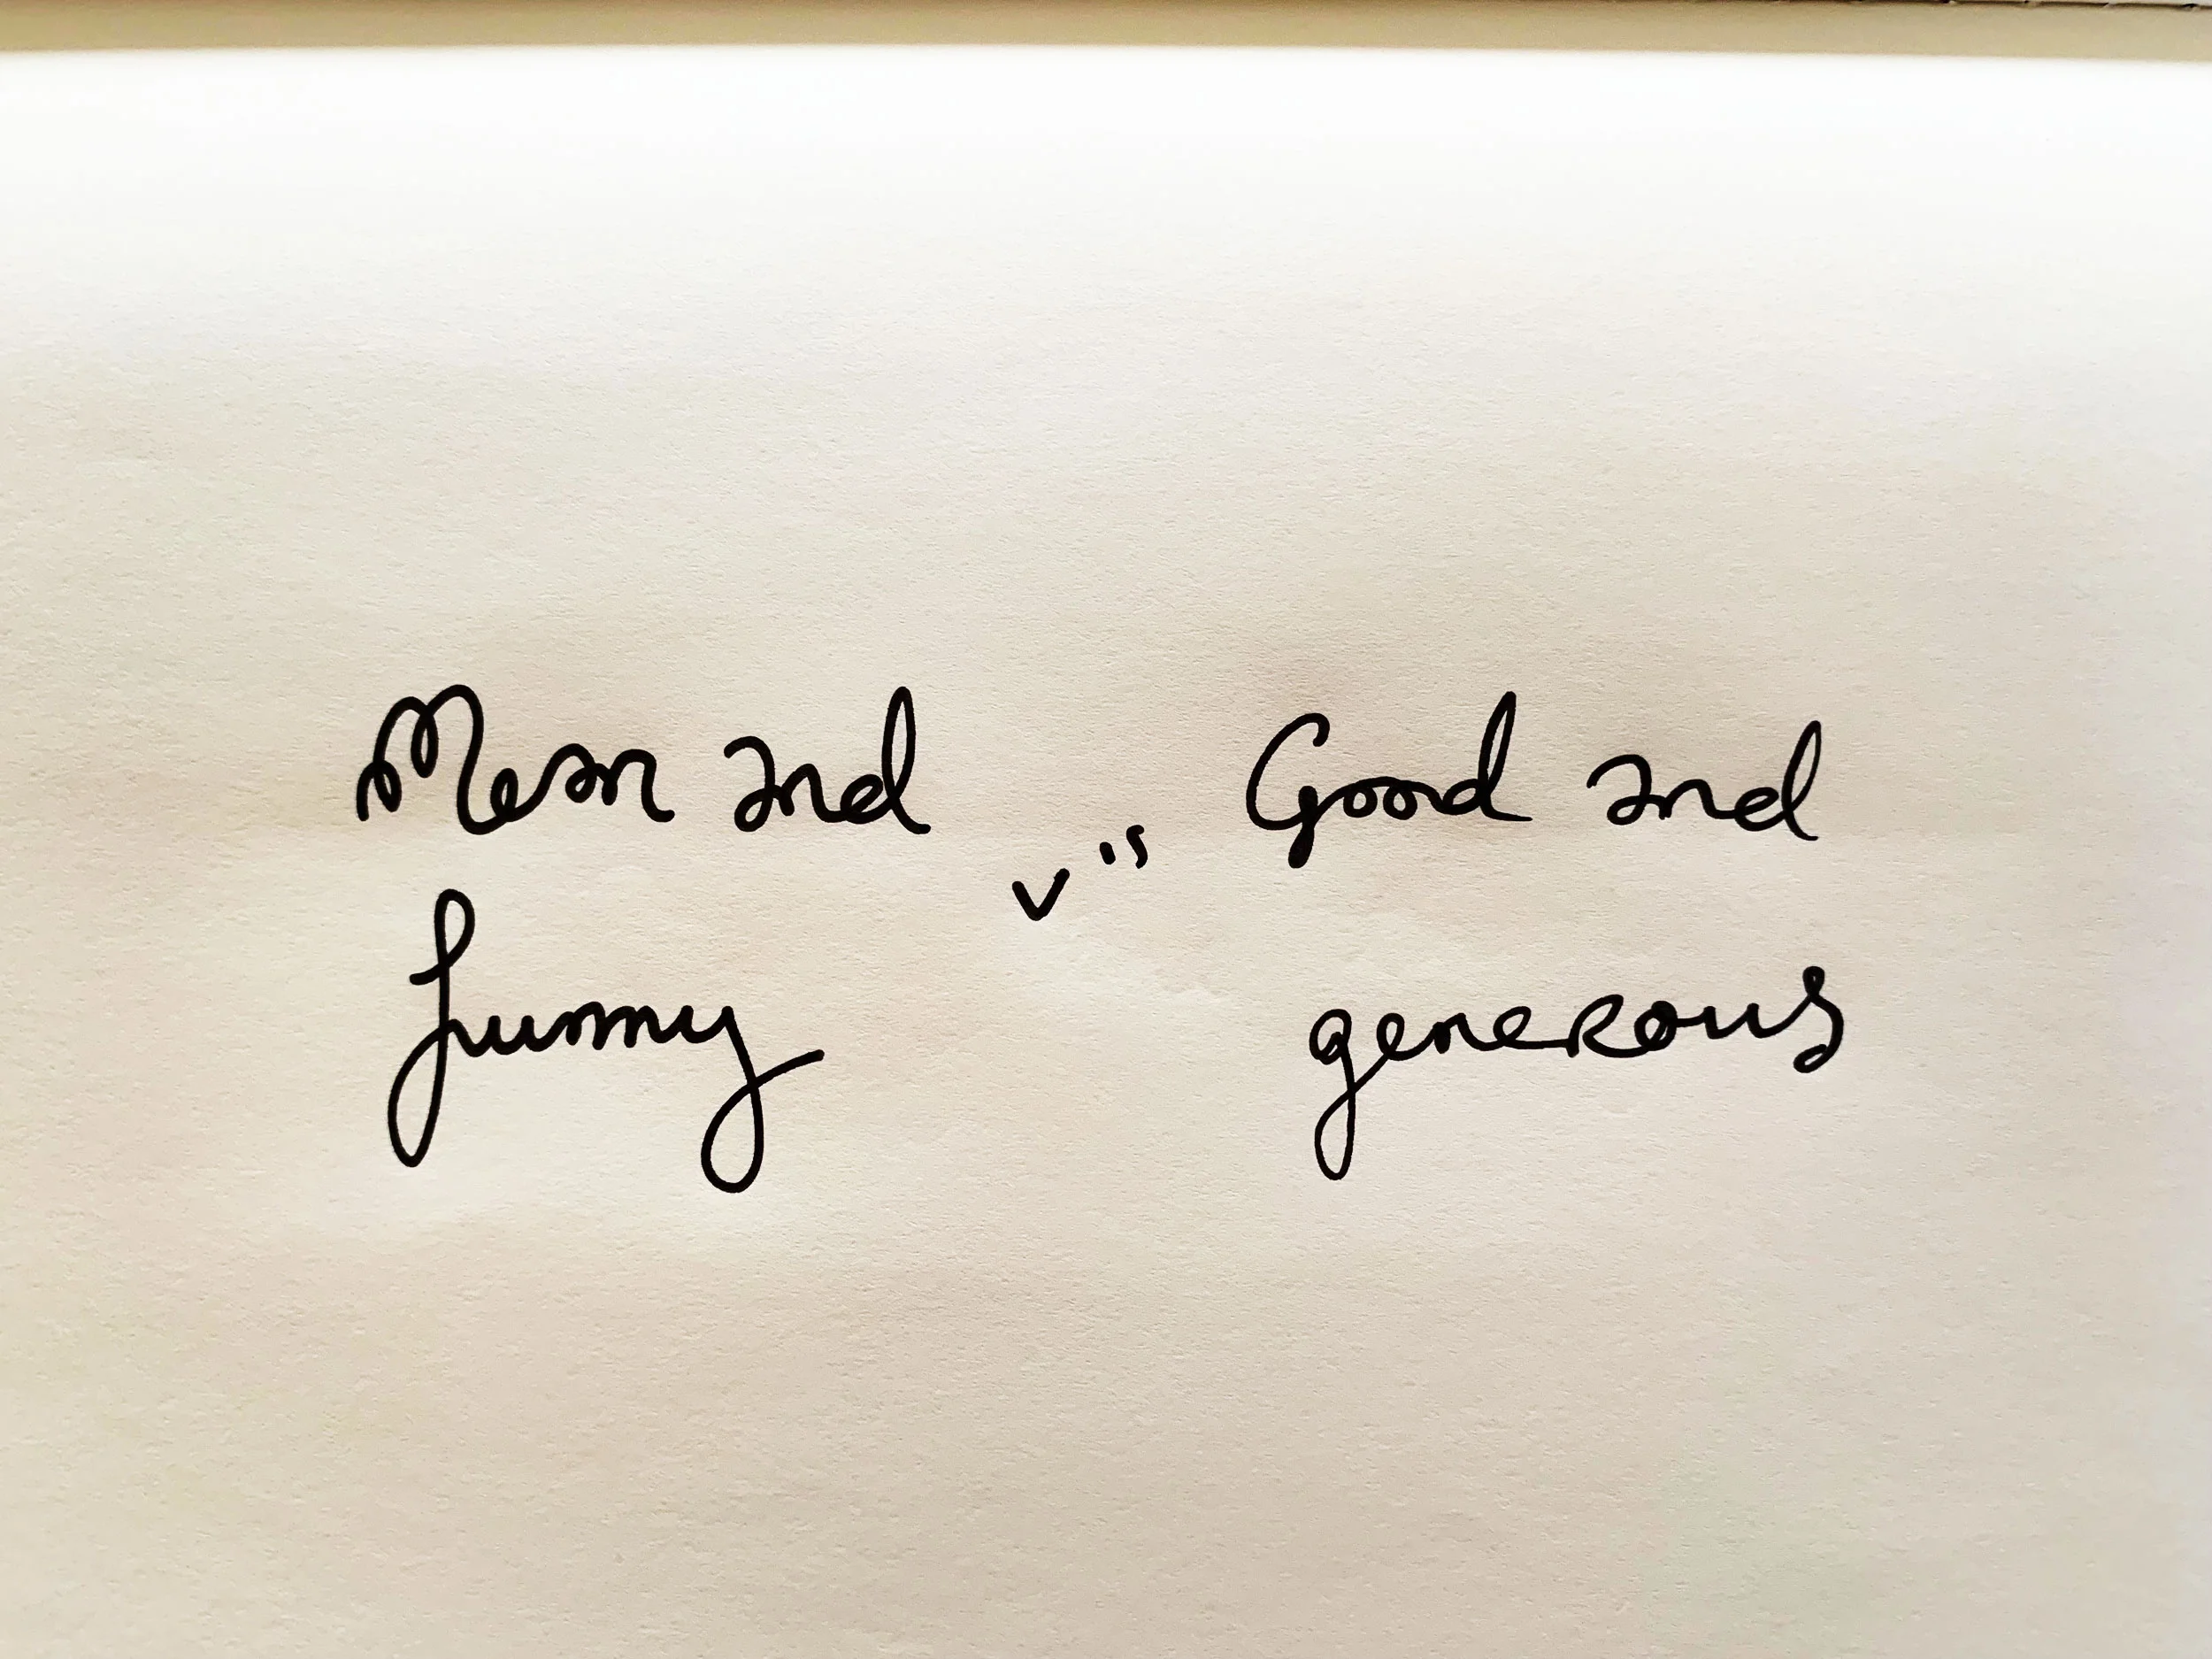 Mean and
funny
v's
Good and
generous